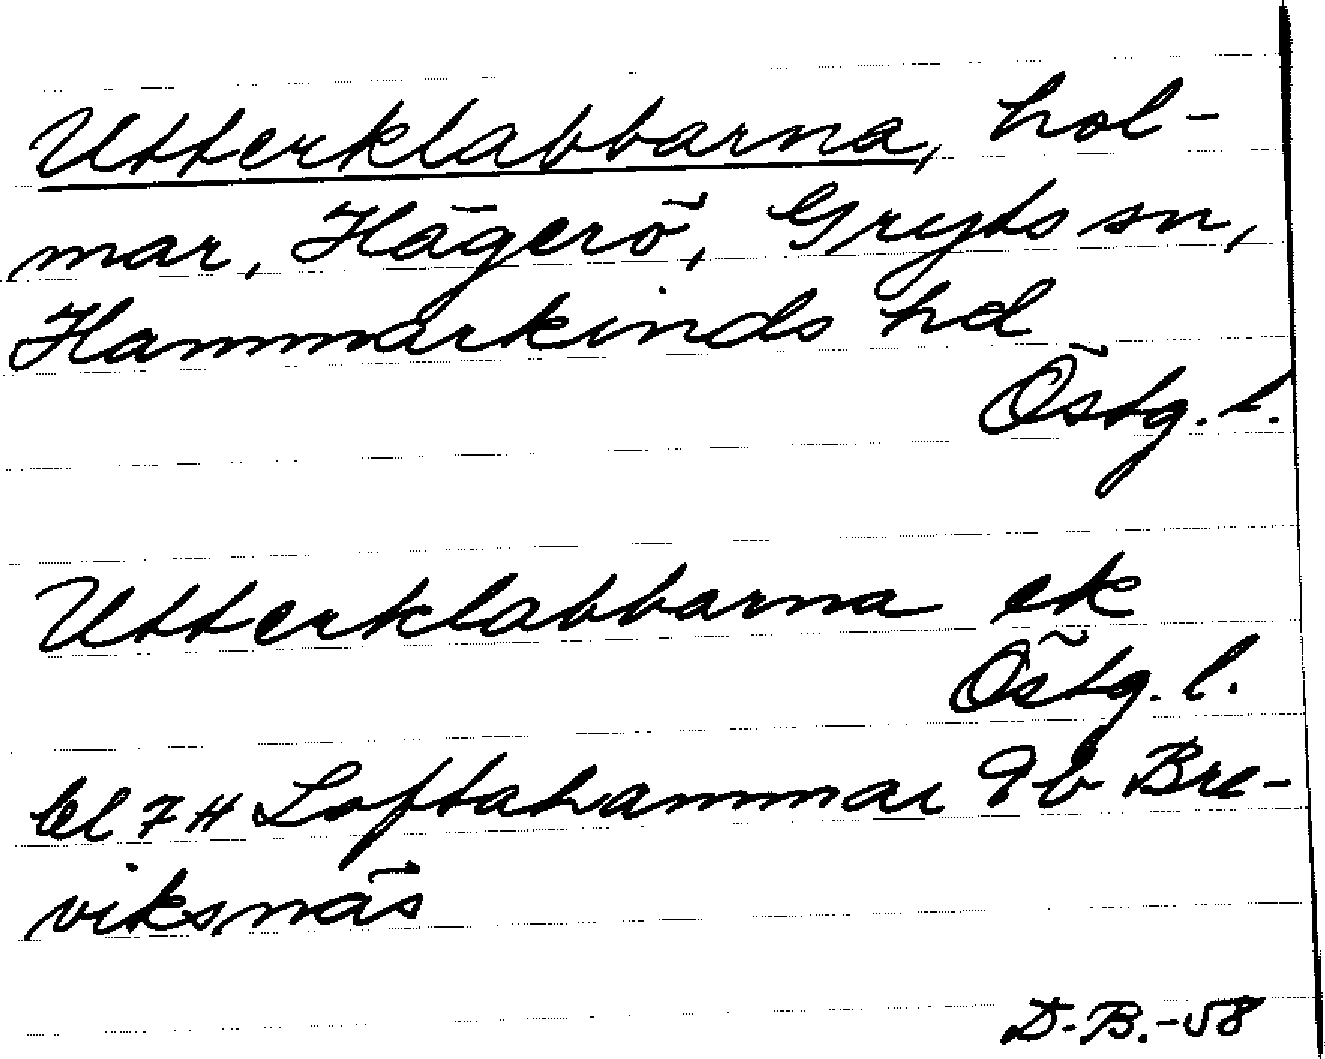 Utterklabbarna, hol-
mar, Hägerö, Gryts sn,
Hammarkinds hd
Östg. l.
Utterklabbarna ek
Östg. l.
bl 7H Loftahammar 9b Bre-
viksnäs
D.B.-58